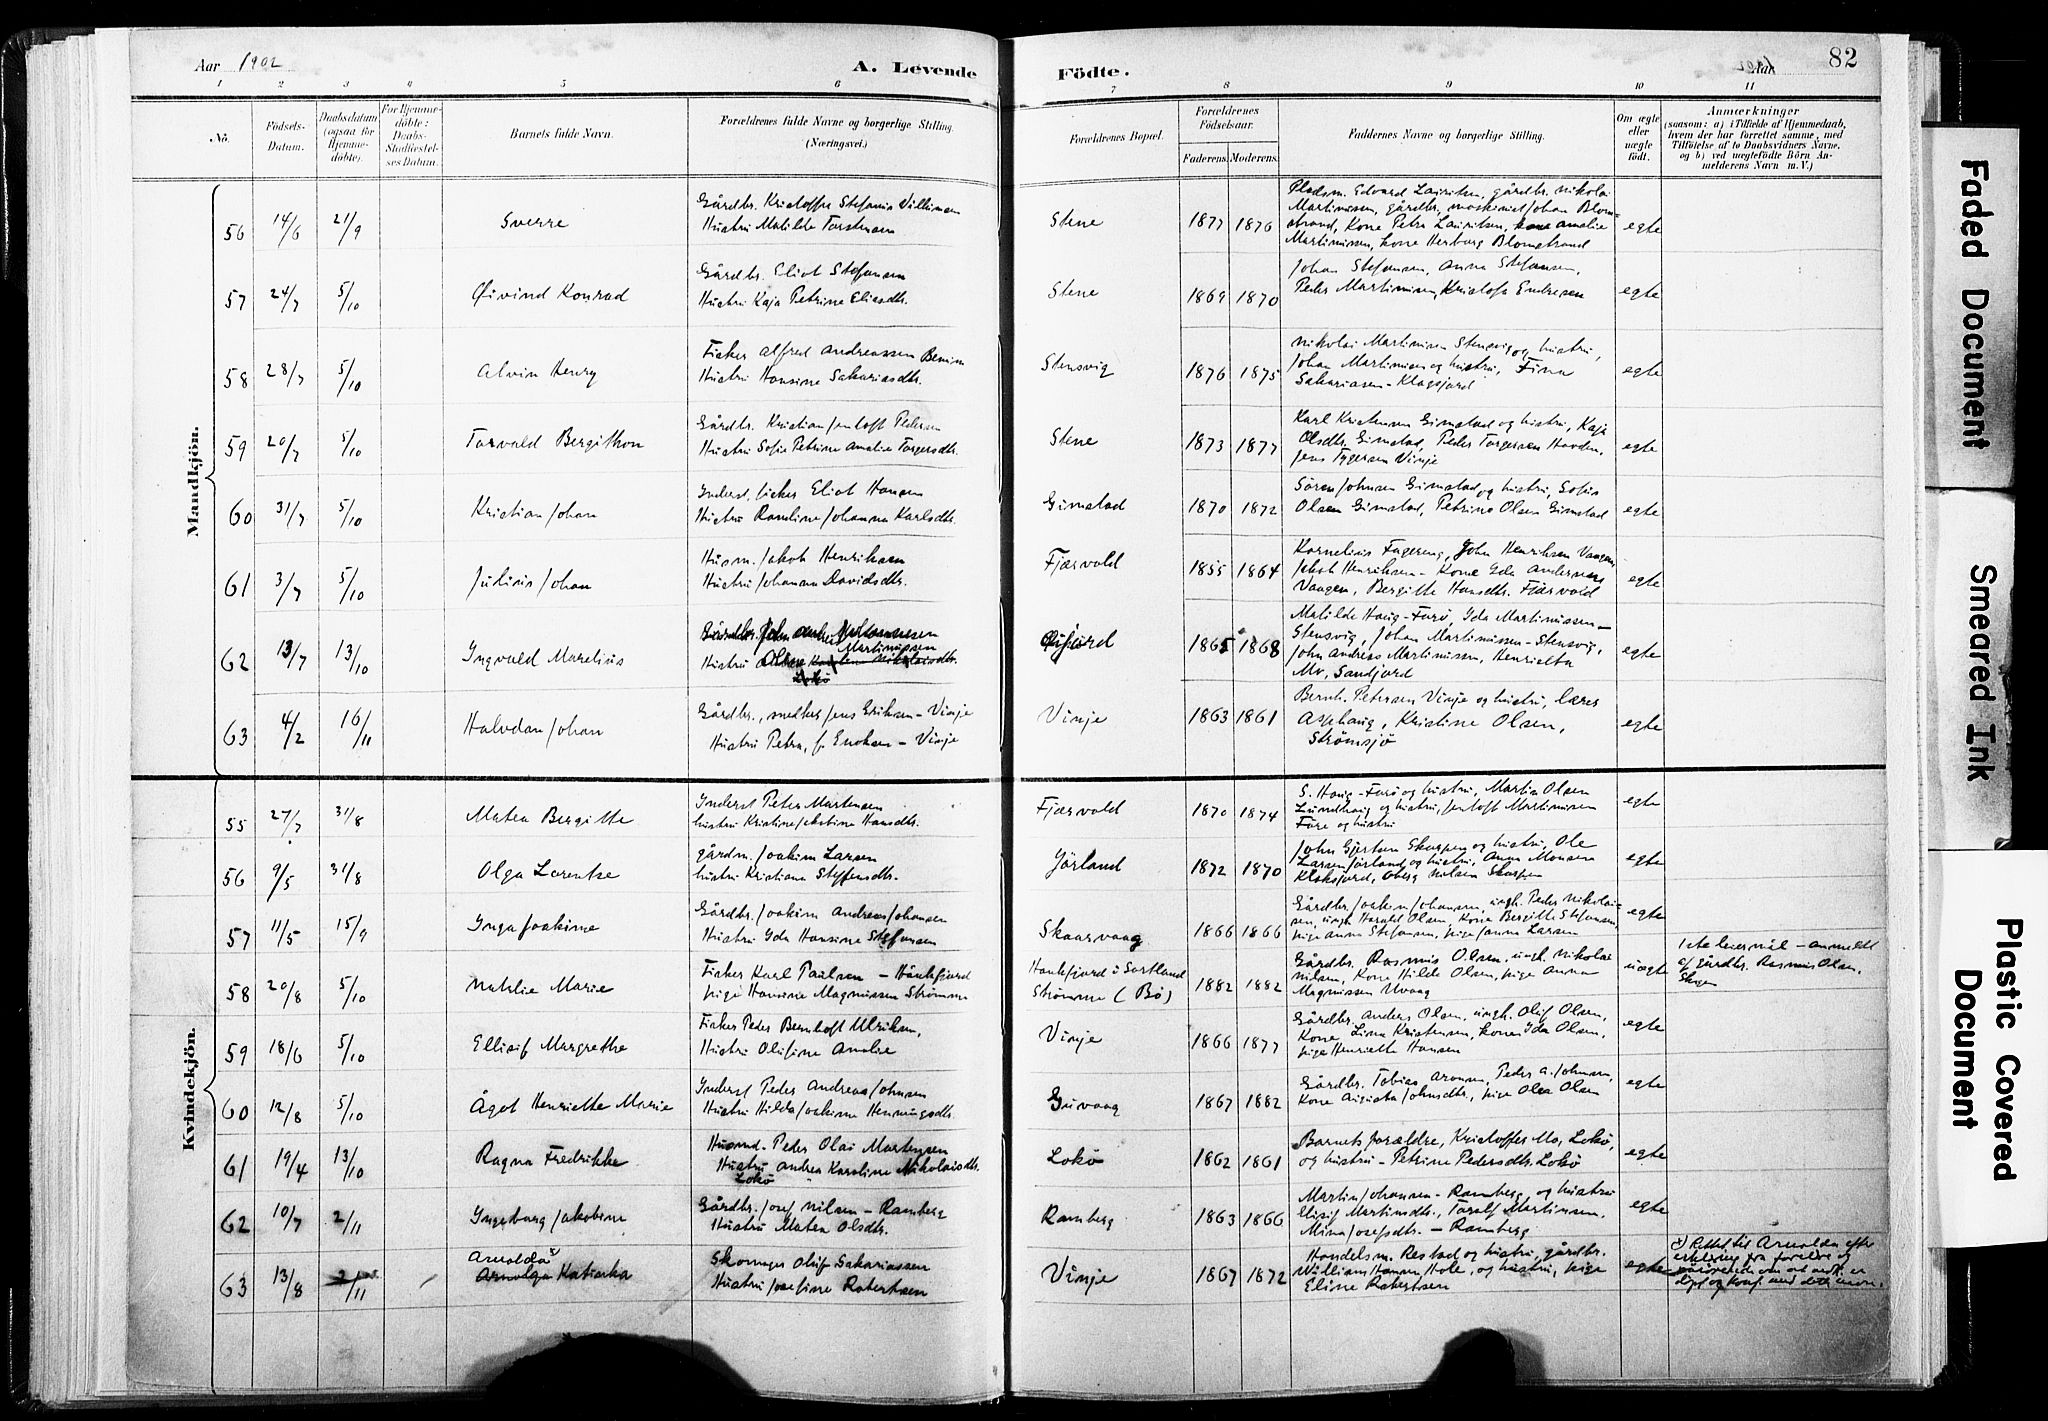 Aar 1902
A. Levende
Födte.
Aar 1902
82
1 2 3 4 5 6 7 8 9 10 11
No.
Födsels-
Datum.
Daabsdatum
(ogsaa for
Hjemme-
döbte).
For Hjemme-
döbte:
Daabs-
Stadfæstel-
ses Datum.
Barnets fulde Navn.
Forældrenes fulde Navne og borgerlige Stilling.
(Næringsvei.)
Forældrenes Bopæl.
Forældrenes
Födselsaar.
Faderens. Moderens.
Faddernes Navne og borgerlige Stilling.
Om ægte
eller
uægte
födt.
Anmærkninger
(saasom: a) i Tilfælde af Hjemmedaab,
hvem der har forrettet samme, med
Tilföielse af to Daabsvidners Navne,
og b) ved uægtefödte Börn An-
melderens Navn m. V.)
Mandkjön.
56 14/6 21/9 Sverre
Gårdbr. Kristoffer Stefanus Villumsen
Hustru Matilde Torstensen
Stene 1877 1876
Pladsm. Edvard Lauritsen, gårdbr. Nikolai
Martinussen, gårdbr., maskinist Johan Blom-
strand, Kone Petra Lauritsen, kone Amalie
Martinussen, kone Herborg Blomstrand
egte
57 24/7 5/10 Øivind Konrad
Gårdbr. Eliot Stefansen
Hustru Kaja Petrine Eliasdtr.
Stene 1869 1870
Johan Stefansen, Anna Stefansen,
Peder Martinusen, Kristoffer Endresen
egte
58 28/7 5/10 Alvin Henry
Fisker Alfred Andreassen
Hustru Hansine Sakariasdtr.
Stensvig 1876 1875
Nikolai Martinusen Stensvig og hustru,
Johan Martinusen og hustru, Fina
Sakariasen - Klaksjord
egte
59 20/7 5/10 Torvald Bergithon
Gårdbr. Kristian Jentoft Pedersen
Hustru Sofie Petrine Amalie Torgersdtr.
Stene 1873 1877
Karl Kristensen Gimstad og hustru, Kaja
Olsdtr. Gimstad, Peder Torgersen Hovden,
Jens Torgersen Vinje
egte
60 31/7 5/10 Kristian Johan
Inderst, fisker Eliot Hansen
Hustru Ramline Johanna Karlsdtr.
Gimstad 1870 1872
Sören Johnsen Gimstad og hustru, Sofus
Olsen Gimstad, Petrine Olsen Gimstad
egte
61 3/7 5/10 Julius Johan
Husm. Jakob Henriksen
Hustru Johanna Davidsdtr.
Fjærvold 1855 1864
Kornelius Fagereng, John Henriksen Vaagen,
Jakob Henriksen - Kone Ida Andersens
Vaagen, Bergitte Hansdtr. Fjærvold
egte
62 13/7 13/10 Ingvald Marelius
Martinussen
Hustru
Lokö
1865 1868
Matilde Haug - Forö, Ida Martinussen -
Stensvig, Johan Martinussen - Stensvig,
John Andreas Martinussen, Henrietta
Mo, Sandjord
egte
63 4/2 16/11 Halvdan Johan
Gårdbr., snedker Jens Eriksen - Vinje
Hustru Petra, f. Enoksen - Vinje
Vinje 1863 1861
Bernh. Petersen Vinje og hustru, lærer
Asphaug, Kristine Olsen,
Strömsjö
egte
Kvindekjön.
55 27/7 31/8 Matea Bergitte
Inderst Peter Martensen
hustru Kristine Jakobine Hansdtr.
Fjærvold 1870 1874
S. Haug - Forö og hustru, Martin Olsen
Lundhaug og hustru, Jentoft Martinusen
Före og hustru
egte
56 9/5 31/8 Olga Lorentse
gårdm. Joakim Larsen
hustru Kristiana Steffensdtr.
Jörland 1872 1870
John Gjertsen Skarpen og hustru, Ole
Larsen Jörland og hustru, Anna Monsen
Klaksjord, Oberg Nilsen Skarpen
egte
57 11/5 15/9 Inga Joakime
Gårdbr. Joakim Andreas Johansen
Hustru Ida Hansine Stefansen
Skaarvaag 1866 1866
Gårdbr. Joakim Johansen, ungk. Peder Nikolai-
sen, ungk. Harald Olsen, Kone Bergitte Stefansen,
pige Anna Stefansen, pige Janna Larsen
egte
58 20/8 5/10 Nathlie Marie
Fisker Karl Paulsen - Håukfjord
pige Hansine Magnussen Strömme
Haukfjord i Sortland
Strömme (Bö)
1882 1882
Gårdbr. Rasmus Olsen, ungk. Nikolai
Nilsen, Kone Hilde Olsen, pige Anna
Magnussen Uvaag
uægte
1ste leiermål - anmeldt
af gårdbr. Rasmus Olsen,
59 18/6 5/10 Ellisif Margrethe
Fisker Peder Bernhoft Ulriksen,
Hustru Olufine Amalie
Vinje 1866 1877
Gårdbr. Anders Olsen, ungk. Oluf Olsen,
Kone Lina Kristensen, kone Ida Olsen,
pige Henriette Hansen
egte
60 12/8 5/10 Ågot Henriette Marie
Inderst Peder Andreas Johnsen
Hustru Hilda Joakime Henningsdtr.
Guvaag 1867 1882
Gårdbr. Tobias Aronsen, Peder A. Johnsen,
Kone Augusta Johnsdtr., pige Olea Olsen
egte
61 19/4 13/10 Ragna Fredrikke
Husmd. Peder Olai Martensen
Hustru Andrea Karoline Nikolaisdtr.
Lokö
Lokö 1862 1861
Barnets forældre, Kristoffer Mo, Lokö,
og hustru - Petrine Pedersdtr. Lokö
egte
62 10/7 2/11 Ingeborg Jakobine
Gårdbr. Josef Nilsen - Ramberg
Hustru Matea Olsdtr.
Ramberg 1863 1866
Martin Johansen - Ramberg, og hustru
Elisif Martinsdtr., Toralf Martinsen,
Mina Josefsdtr. - Ramberg
egte
63 13/8 2/11 Arnolda x Katinka
Skomager Oluf Sakariassen
Hustru Josefine Robertsen
Vinje 1867 1872
Handelsm. Restad og hustru, gårdbr.
William Hansen Hole, og hustru, pige
Eline Robertsen
egte
x) Rettet til Arnolda efter
erklæring fra foreldre og
döpt og konf. med dette navn.
Faded Document
Smeared Ink
Plastic Covered
Document